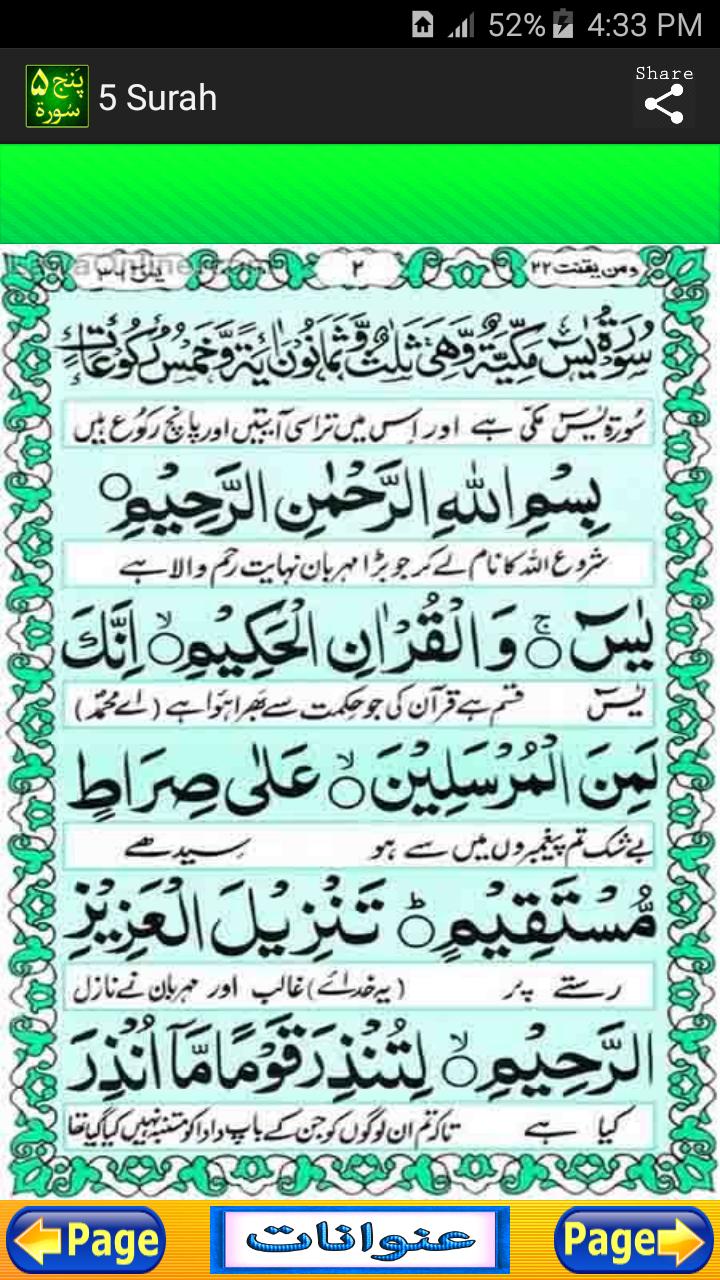 52% 4:33 PM
پنج ۵ سورة
5 Surah
Share
ومن یقنت ۲۲
۲
سُوْرَةُ يٰسٓ مَكِّيَّةٌ وَّهِيَ ثَلٰثٌ وَّثَمَانُوْنَ اٰيَةً وَّخَمْسُ رُكُوْعَاتٍ
سُورۃ یٰسٓ مکّی ہے اور اِس میں تراسی آیتیں اور پانچ رکوُع ہیں
بِسْمِ اللهِ الرَّحْمٰنِ الرَّحِيْمِ ○
شروع اللہ کا نام لے کر جو بڑا مہربان نہایت رحم والا ہے
يٰسٓ ○ۚ وَالْقُرْاٰنِ الْحَكِيْمِ ○ۙ اِنَّكَ
یٰسٓ قسم ہے قرآن کی جو حِکمت سے بَھرا ہوٗا ہے (اے محمدؐ)
لَمِنَ الْمُرْسَلِيْنَ ○ۙ عَلٰى صِرَاطٍ
بے شک تم پیغمبروں میں سے ہو سِیدھے
مُّسْتَقِيْمٍ ○ؕ تَنْزِيْلَ الْعَزِيْزِ
رستے پر (یہ خدائے) غالب اور مہربان نے نازل
الرَّحِيْمِ ○ۙ لِتُنْذِرَ قَوْمًا مَّاۤ اُنْذِرَ
کیا ہے تاکہ تم ان لوگوں کو جن کے باپ دادا کو متنبہ نہیں کیا گیا تھا
Page عنوانات Page